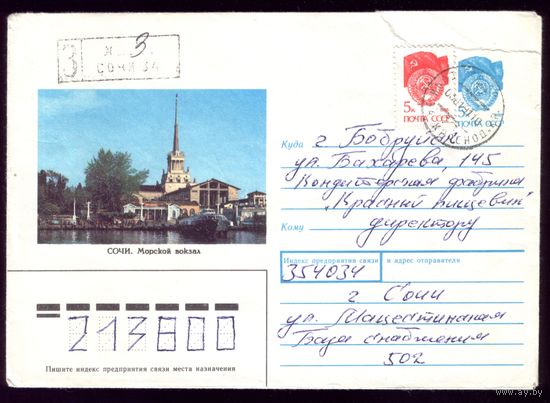 З
Ж 3
СОЧИ 34
5к
ПОЧТА СССР
5к
ПОЧТА СССР
Куда г. Бобруйск
ул. Бахарева, 145
Кондитерская фабрика
"Красный пищевик"
Кому директору
СОЧИ. Морской вокзал
Индекс предприятия связи и адрес отправителя
354034
г Сочи
ул. Мацестинская
База снабжения
502
213800
Пишите индекс предприятия связи места назначения
www.ay.by